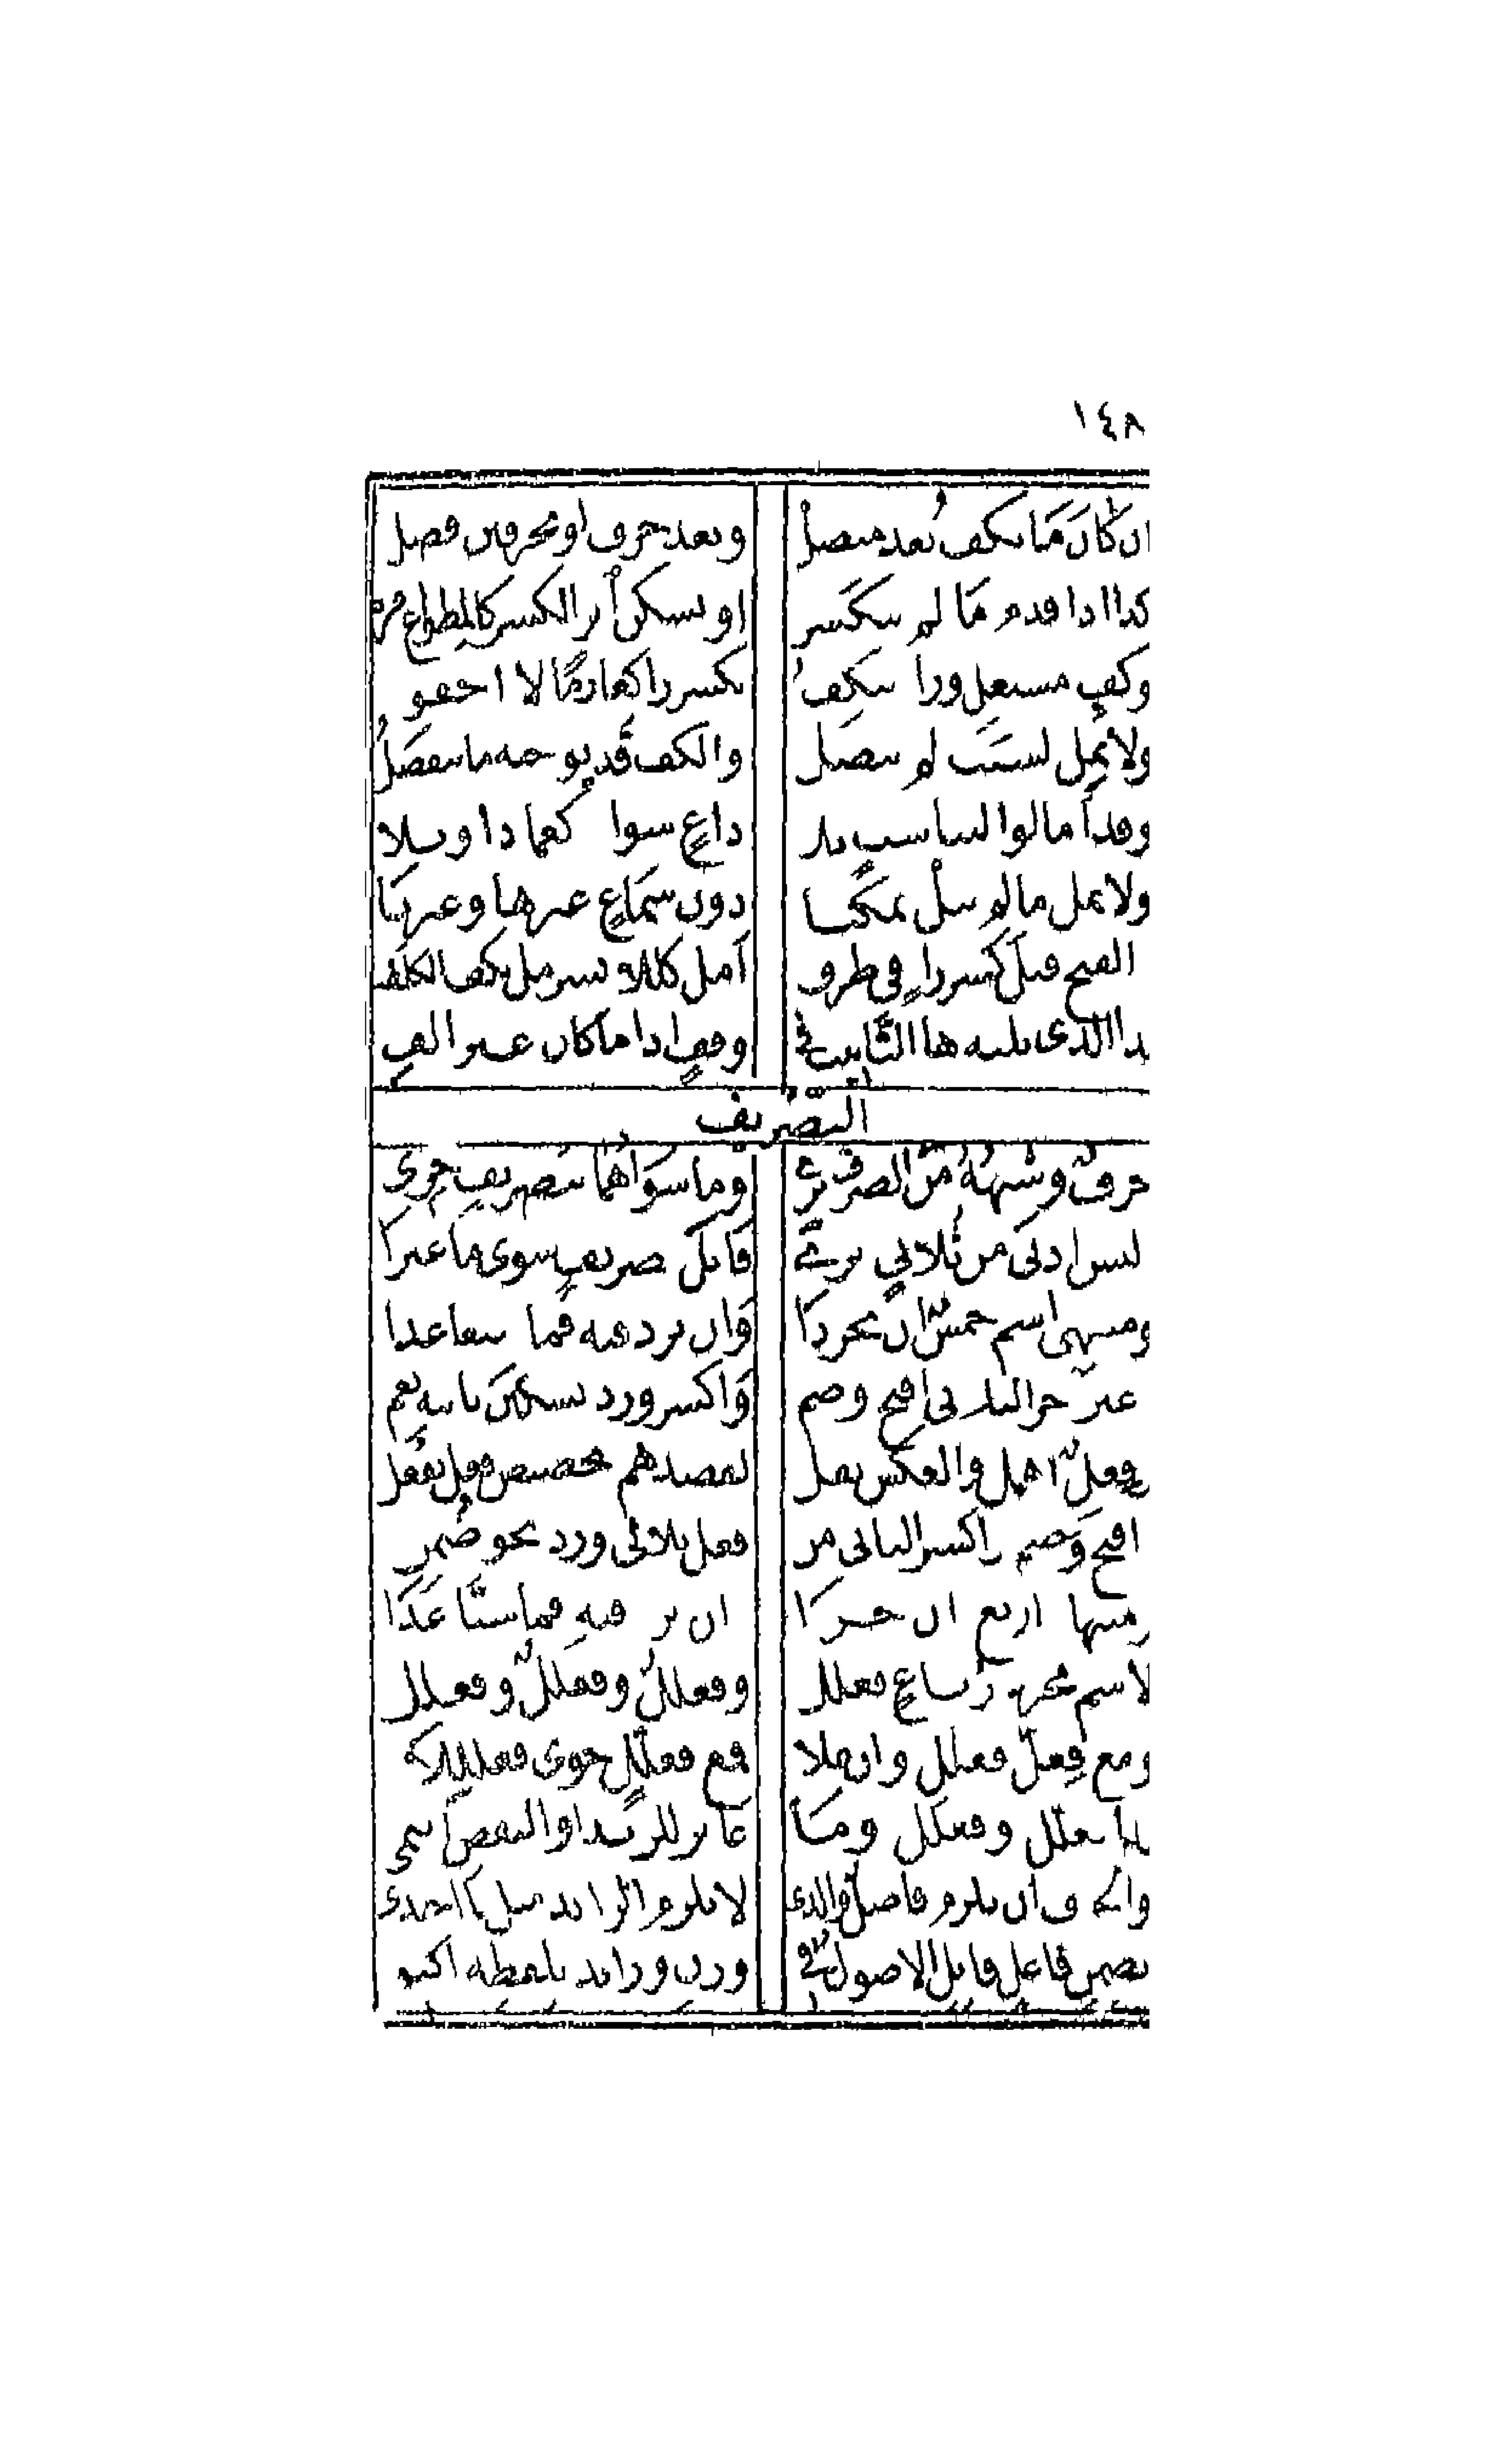 ١٤٨
ان كَانَ مَا يكف بُعد متصلْ وبعد حرف او بحرفين فصل
كذا اذا قدم مَا لم ينكَسر او يسكن أثر الكسر كالمطواع مر
وكف مستعل ورا ينكف بكسر را كغارمًا لا اجفو
ولا تمل لسبَب لم يتصل والكف قَد يوجبه ما ينفصلُ
وقد أمالوا لتناسبٍ بلا داعٍ سوا كعمادا وتلا
ولا تمل ما لم ينلْ تمكّنا دون سَمَاعٍ غيرها وغيرنَا
الفتح قبل كسر راءٍ في طرف أمل كللايسر مل تكف الكلف
كذا الذي يليه ها التَّانيث في وقفٍ اذا ما كان غير الفِ
التّصْريف
حرفٌ وشبهُهُ منَ الصرف بري وما سوَاهُما بتصريفٍ حري
ليس ادنَى من ثُلاثيٍّ يرى قَابلَ تصريفٍ سوى مَا غيرا
ومنتهى اسم خمسٌ ان تجردَا وَان يزد فيه فما سبعا عدا
غيرَ آخر الثلاثي افتح وضم وَاكسر وزد تسكينَ ثانيهِ تعم
وفِعُلٌ اهمل والعكس يقل لقصدهم تخصيص فعلٍ بفُعِل
افتح وَضم واكسر الثاني من فعل ثلاثي وزد نحو ضُمن
ومنتهاه اربع ان جردَا ان يزد فيهِ فما ستًّا عَدَا
لاسم مجرد رُباعٍ فعلل وفعللٌ وفعللٌ وفعلل
ومع فِعلٍّ فعلل وان علا فمع فعلّلٍ حوى فعلللا
كذا فعلّل وفعلل ومَا غَاير للزيد او النقص انتمى
والحرف ان يلزم فاصلٌ والذي لا يلزم الزائد مثل تا احتذي
بضمن فاعل قابل الاصول في وزنٍ وزائد بلفظه اكتفي